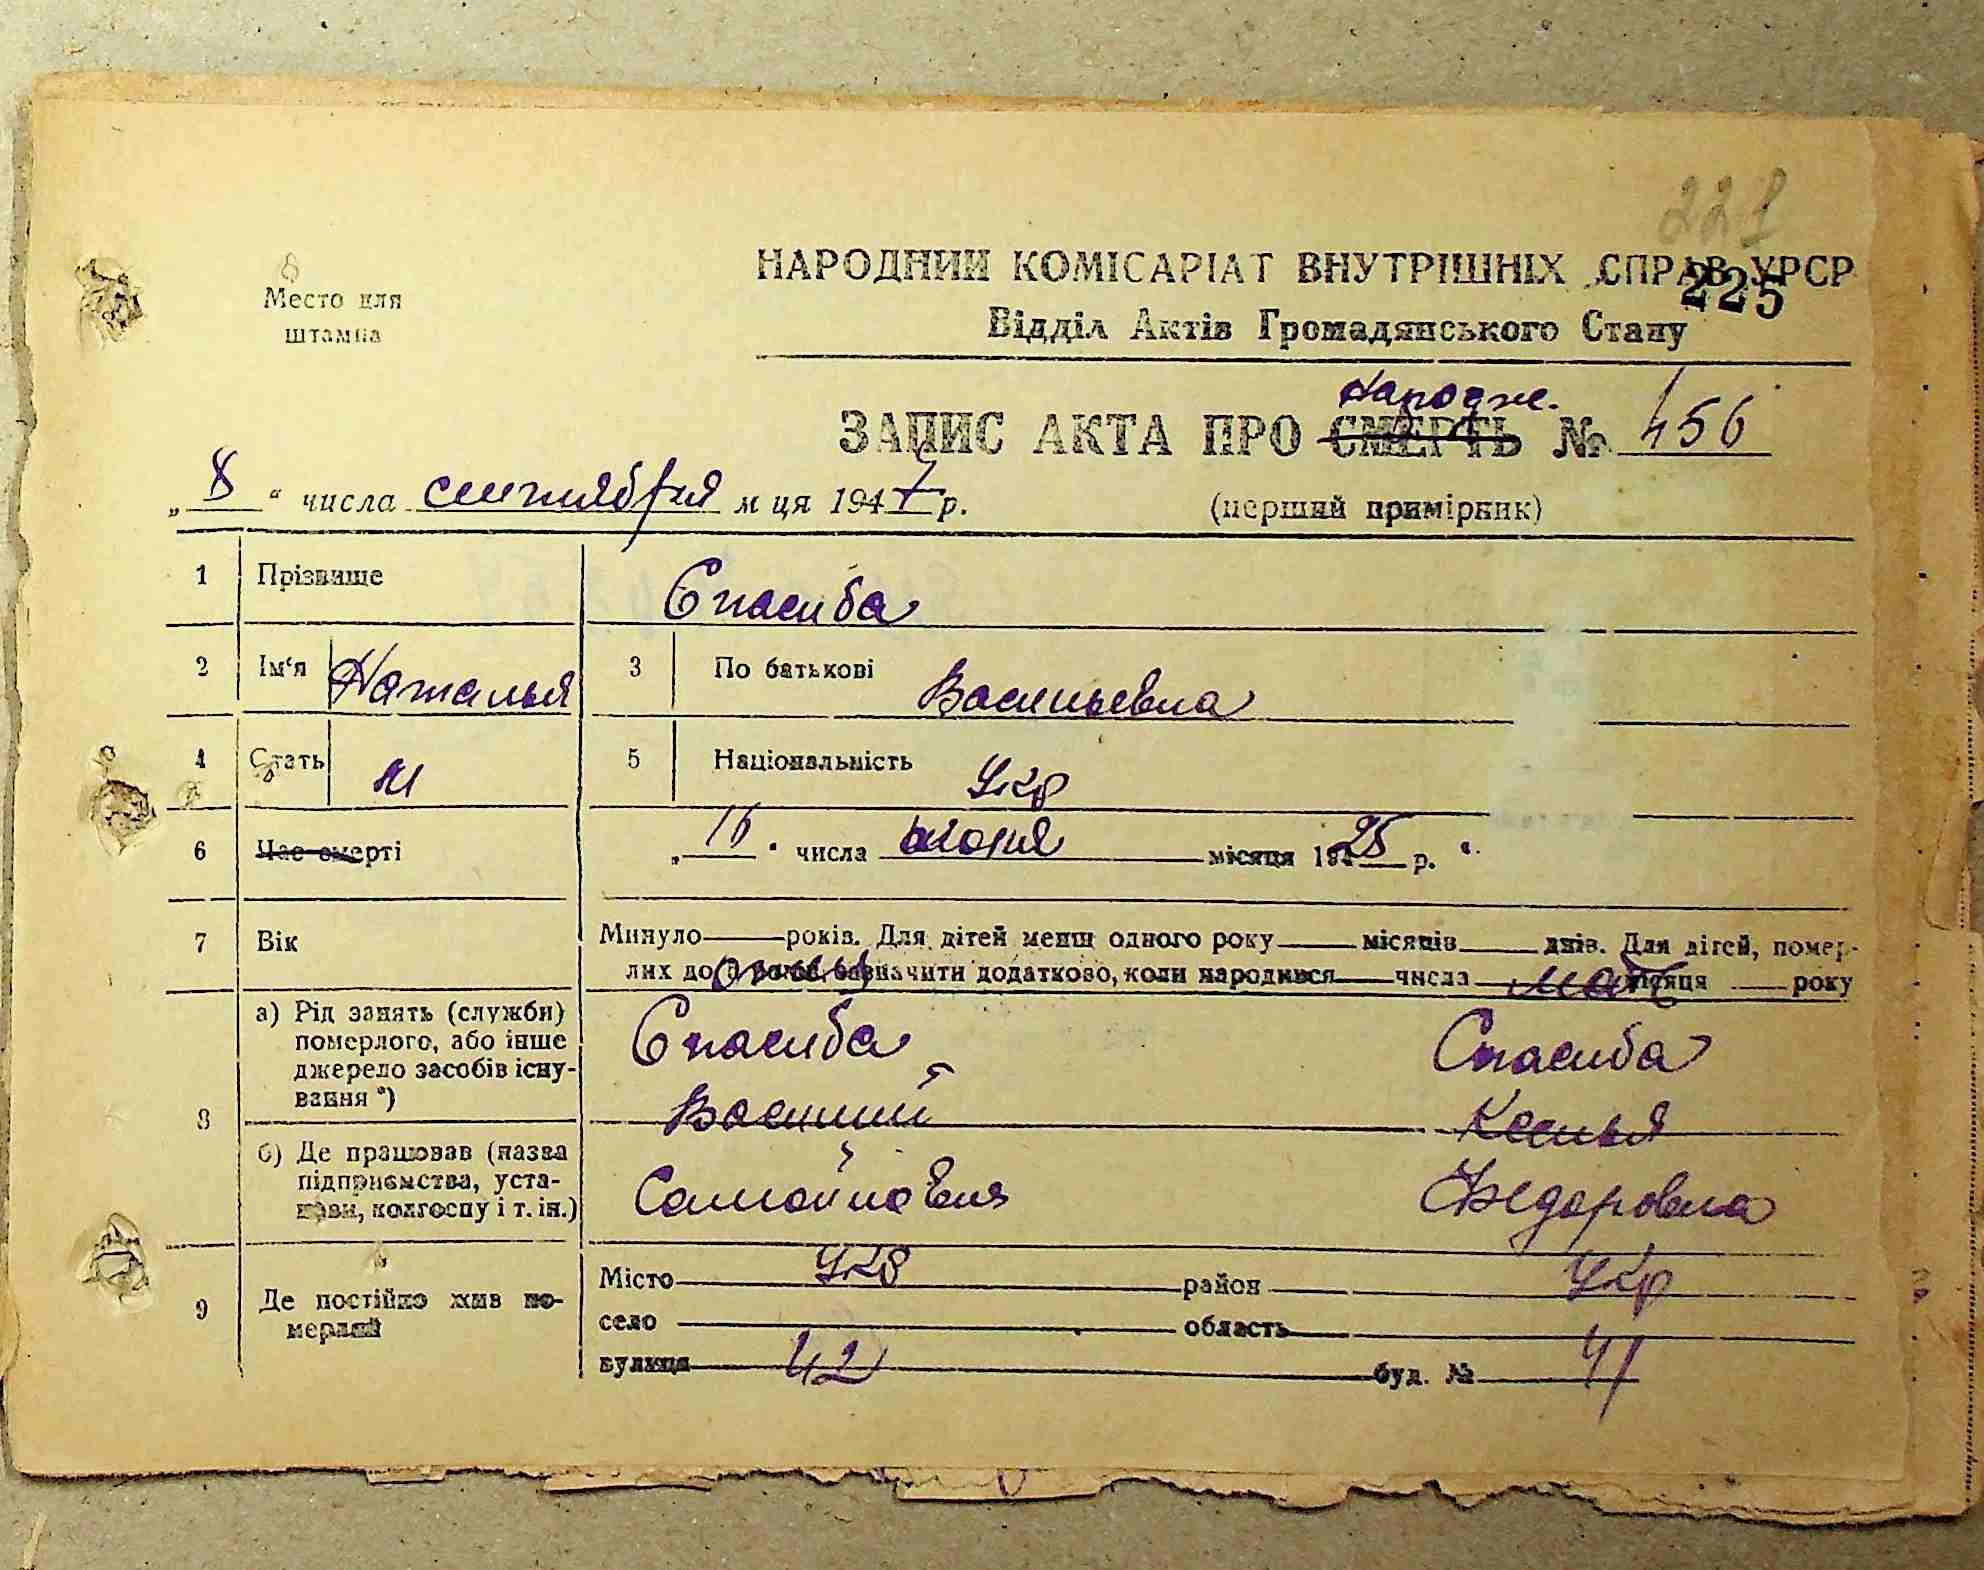 221
Место для
штампа
НАРОДНИЙ КОМІСАРІАТ ВНУТРІШНІХ СПРАВ УРСР
225
Відділ Актів Громадянського Стану
народже.
ЗАПИС АКТА ПРО СМЕРТЬ № 456
„ 8 “ числа сентября м ця 1947 р. (перший примірник)
1 Прізвище Спасиба
2 Ім‘я Наталья 3 По батькові Васильевна
4 Стать 5 Національність Укр
6 Час смерті „ 16 “ числа місяця 1925 р.
7 Вік Минуло років. Для дітей менш одного року місяців днів. Для дітей, помер-
лих до року, зазначити додатково, коли народився числа місяця року
отец мать
8 а) Рід занять (служби)
померлого, або інше
джерело засобів існу-
вання *)
Спасиба Спасиба
Василий Ксенья
б) Де працював (назва
підприємства, уста-
нови, колгоспу і т. ін.)
Самойлов Федоровна
9 Де постійно жив по-
мерлий
Місто Укр район Укр
село область
вулиця 42 буд. № 41